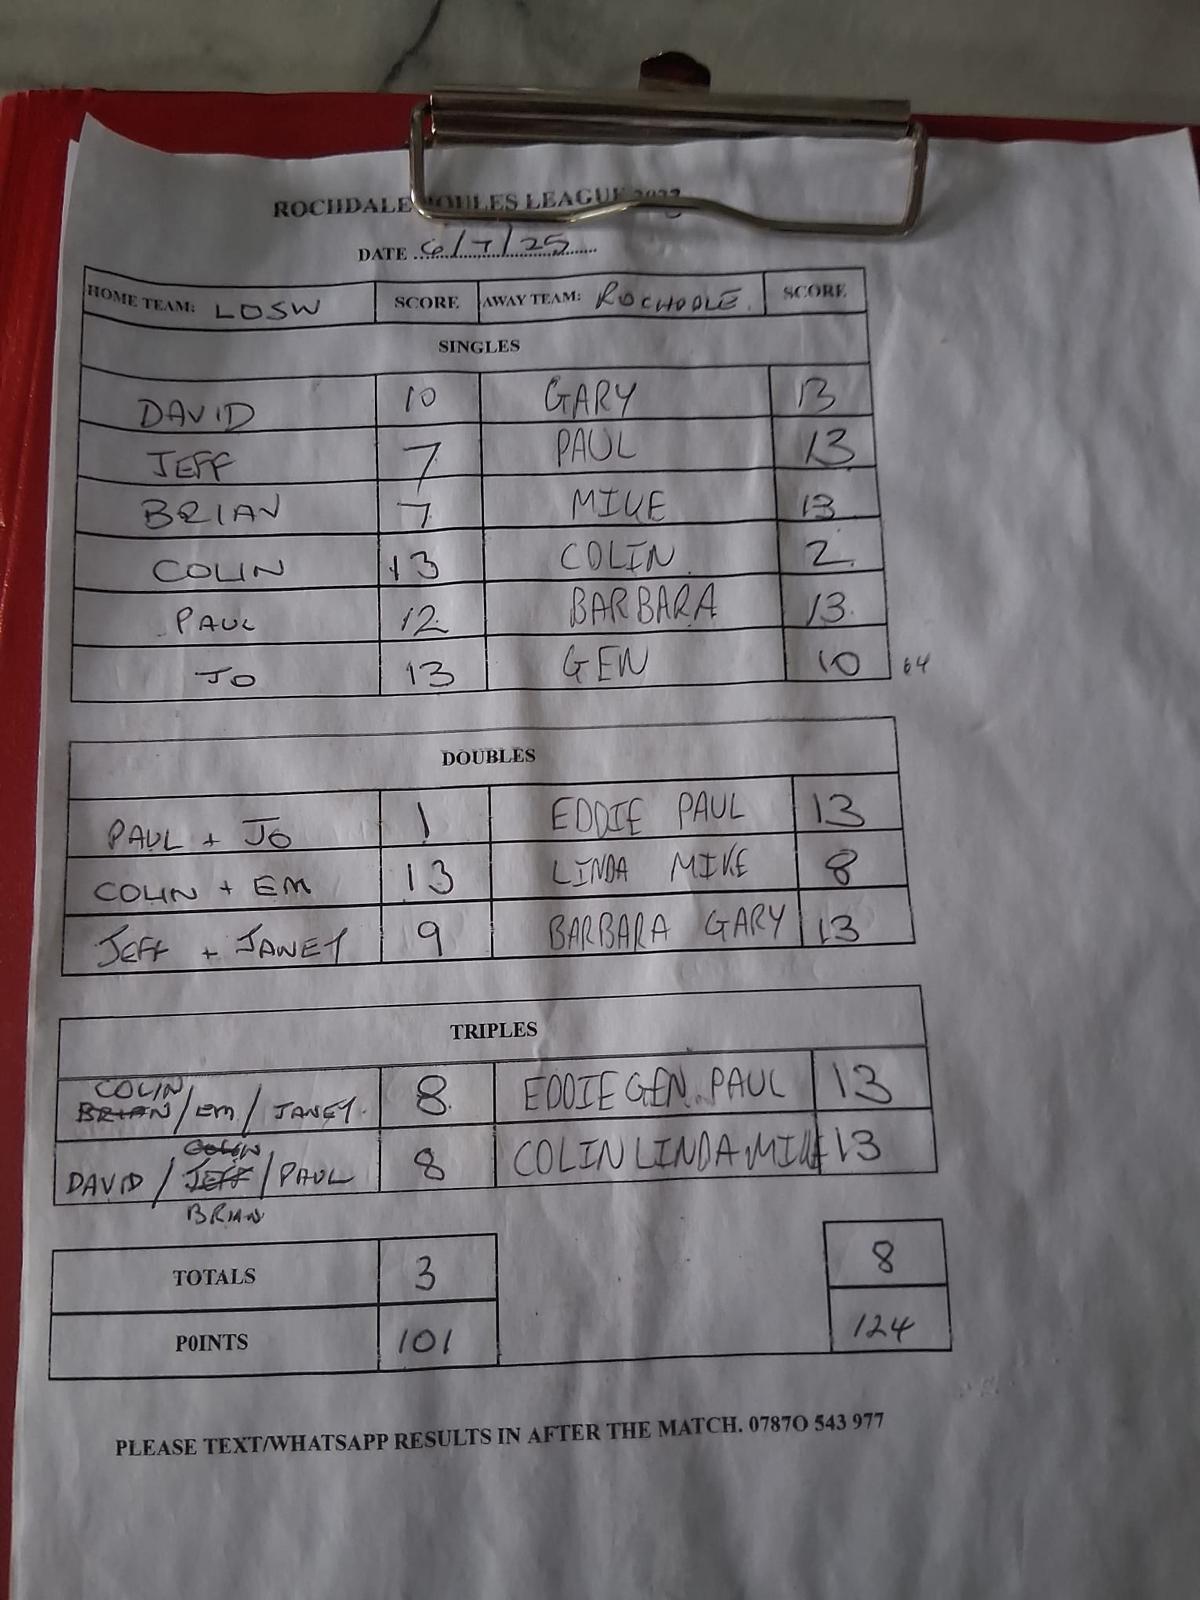 ROCHDALE BOULES LEAGUE
DATE 6/7/25
HOME TEAM: LOSW SCORE AWAY TEAM: ROCHDALE. SCORE
SINGLES
DAVID 10 GARY 13
JEFF 7 PAUL 13
BRIAN 7 MIKE 13
COLIN 13 COLIN 2
PAUL 12 BARBARA 13
JO 13 GEN 10 64
DOUBLES
PAUL + JO 1 EDDIE PAUL 13
COLIN + EM 13 LINDA MIKE 8
JEFF + JANET 9 BARBARA GARY 13
TRIPLES
COLIN
BRIAN / EM / JANET 8 EDDIE GEN PAUL 13
COLIN
DAVID / JEFF / PAUL 8 COLIN LINDA MIKE 13
BRIAN
TOTALS 3 8
POINTS 101 124
PLEASE TEXT/WHATSAPP RESULTS IN AFTER THE MATCH. 0787O 543 977